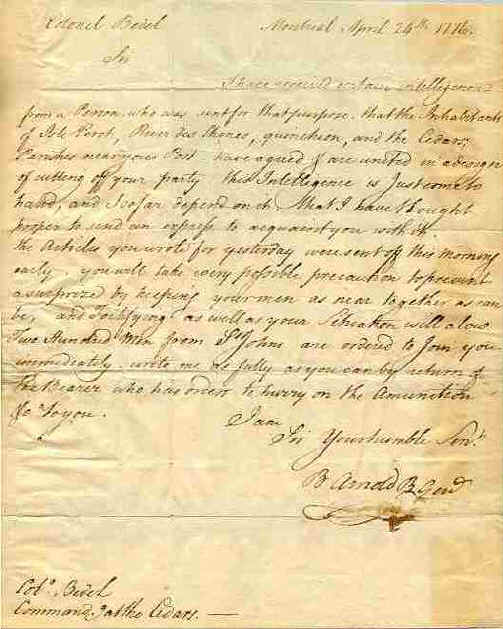 Colonel Bedel Montreal April 24th 1776.
Sir
I have received certain intelligence
from a Person who was sent for that purpose. that the Inhabitants
of Isle Perot, River des Shenes, quinchein, and the Cedars,
Parishes near your Post have agreed & are united in a design
of cutting off your party this Intelligence is Just come to
hand, and I so far depend on it, that I have thought
proper to send an express to acquaint you with it.
the Articles you wrote for yesterday were sent off this morning
early. you will take every possible precaution to prevent
a surprize by keeping your men as near together as can
be, and Fortifying as well as your Situation will allow
Two Hundred Men from St Johns are ordered to Join you
immediately write me as fully as you can by return of
the Bearer who has orders to hurry on the Amunition
&c to you.
I am
Sir Your humble Servt
B Arnold B Genl
Colo. Bedel
Command.g at the Cedars. —